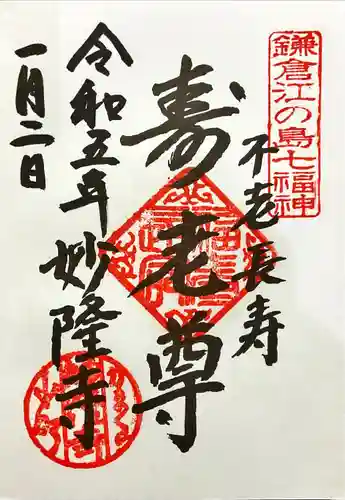 鎌倉江の島七福神
不老長寿
寿老尊
令和五年
妙隆寺
一月二日